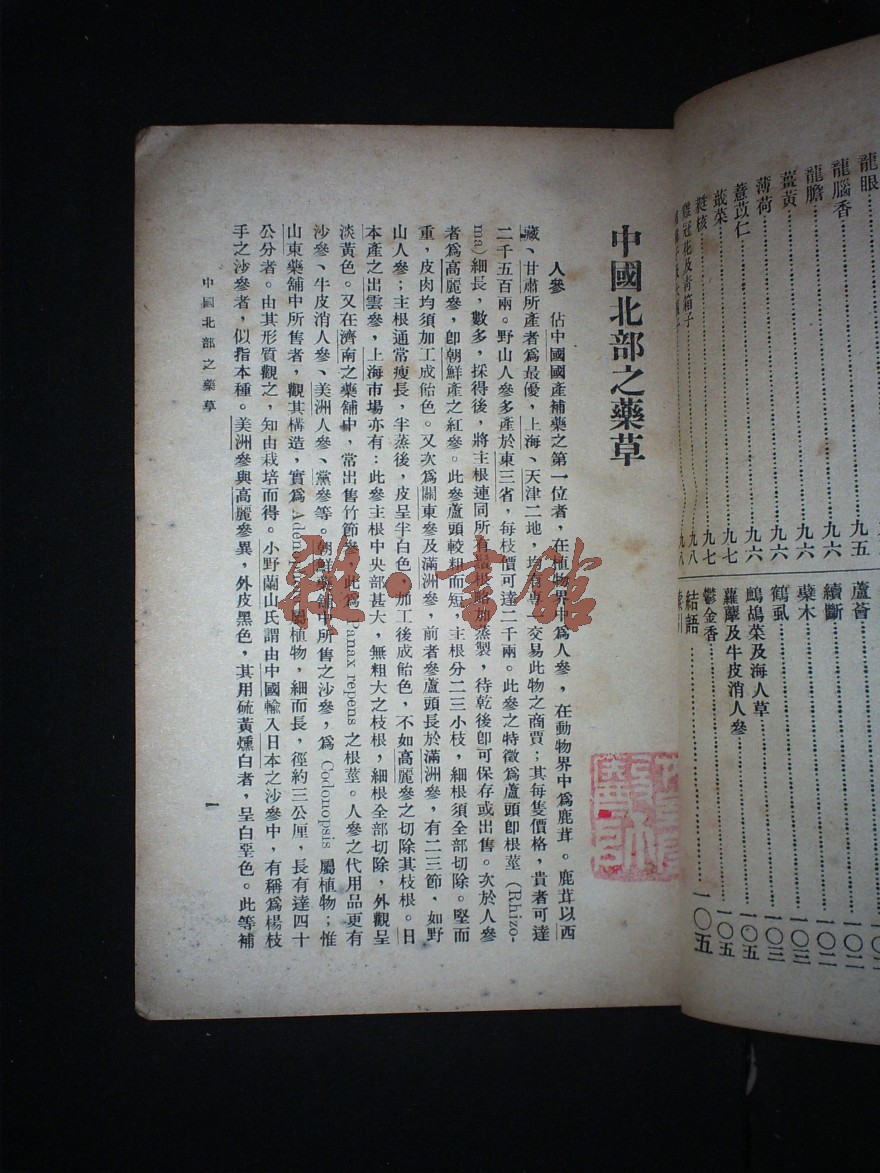 龍眼
九五
龍腦香
九六
龍膽
九六
薑黃
九六
薄荷
九六
薏苡仁
九七
蕺菜
九七
蕤核
九八
雞冠花及青箱子
蘆薈
續斷
一〇二
蘗木
一〇二
鶴虱
一〇三
鷓鴣菜及海人草
一〇三
蘿藦及牛皮消人參
一〇五
鬱金香
一〇五
結語
一〇五
索引
中國北部之藥草
人參 佔中國國產補藥之第一位者，在植物界中爲人參，在動物界中爲鹿茸。鹿茸以西
藏、甘肅所產者爲最優，上海、天津二地，均有專一交易此物之商賈；其每隻價格，貴者可達
二千五百兩。野山人參多產於東三省，每枝價可達二千兩。此參之特徵爲蘆頭卽根莖（Rhizo-
ma）細長，數多，採得後，將主根連同所有鬚根略加蒸製，待乾後卽可保存或出售。次於人參
者爲高麗參，卽朝鮮產之紅參。此參蘆頭較粗而短，主根分二三小枝，細根須全部切除。堅而
重，皮肉均須加工成飴色。又次爲關東參及滿洲參，前者參蘆頭長於滿洲參，有二三節，如野
山人參；主根通常瘦長，半蒸後，皮呈半白色，加工後成飴色，不如高麗參之切除其枝根。日
本產之出雲參，上海市場亦有：此參主根中央部甚大，無粗大之枝根，細根全部切除，外觀呈
淡黃色。又在濟南之藥舖中，常出售竹節參，此爲 Panax repens 之根莖。人參之代用品更有
沙參、牛皮消人參、美洲人參、黨參等。朝鮮藥舖中所售之沙參，爲 Codonopsis 屬植物；惟
山東藥舖中所售者，觀其構造，實爲 Aden 屬植物，細而長，徑約三公厘，長有達四十
公分者。由其形質觀之，知由栽培而得。小野蘭山氏謂由中國輸入日本之沙參中，有稱爲楊枝
手之沙參者，似指本種。美洲參與高麗參異，外皮黑色，其用硫黃燻白者，呈白堊色。此等補
中國北部之藥草
一
雅·書館